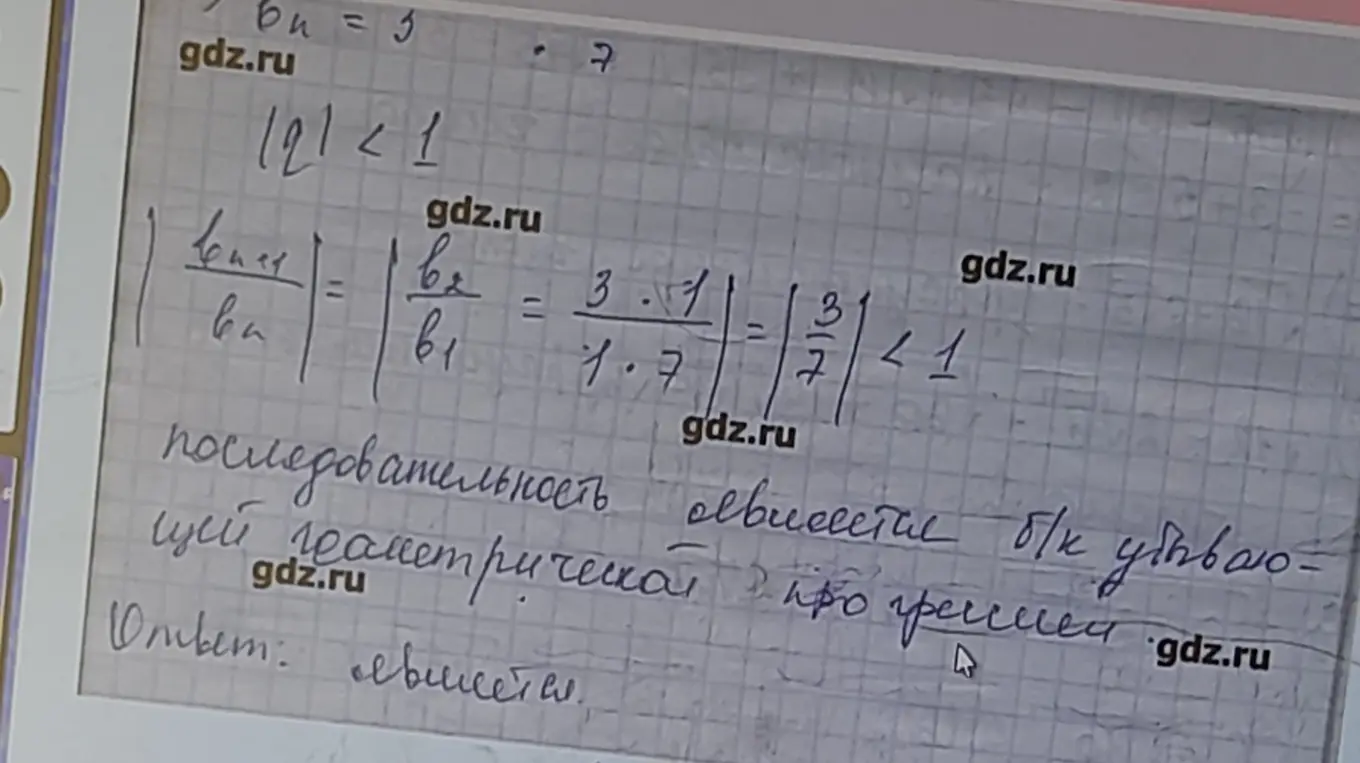 bn = 3 · 7
gdz.ru
|q| < 1
gdz.ru
| bn+1 / bn | = | b2 / b1 = 3 · 1 / 1 · 7 | = | 3 / 7 | < 1
gdz.ru
gdz.ru
последовательность является б/к убываю=
щей геометрической прогрессией
gdz.ru
gdz.ru
Ответ: является.